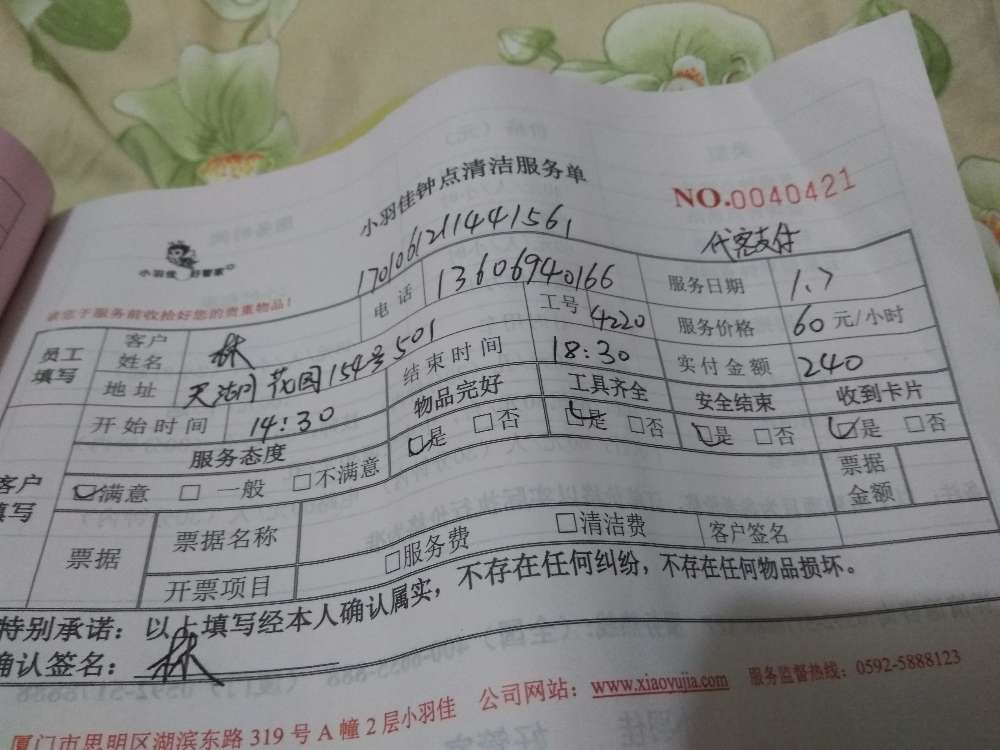 小羽佳钟点清洁服务单
NO.0040421
小羽佳 好管家
1701061211441561
代客支付
请您于服务前收拾好您的贵重物品!
员工填写 客户姓名 林 电话 13606940166 服务日期 1.7
地址 天湖花园154号501 工号 4220 服务价格 60元/小时
开始时间 14:30 结束时间 18:30 实付金额 240
客户填写 服务态度 物品完好 工具齐全 安全结束 收到卡片
满意 □ 一般 □不满意 是 □否 是 □否 是 □否 是 □否
票据 票据名称 票据金额
开票项目 □服务费 □清洁费 客户签名
特别承诺:以上填写经本人确认属实,不存在任何纠纷,不存在任何物品损坏。
确认签名:林
厦门市思明区湖滨东路319号A幢2层小羽佳 公司网站:www.xiaoyujia.com 服务监督热线:0592-5888123